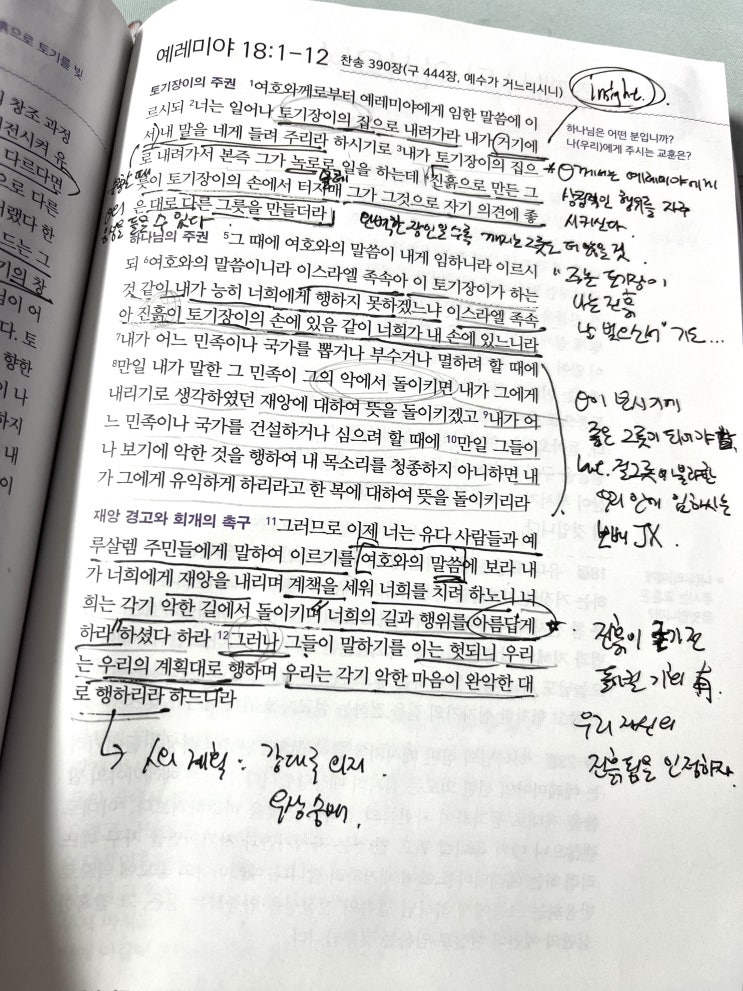 흙으로 토기를 빚
창조 과정
전시켜 유
다르다면
으로 다른
러했다 한
드는 그
기의 창
점이 어
다. 토
향한
이 나
하지
내
이
예레미야 18:1-12 찬송 390장(구 444장, 예수가 거느리시니)
insight.
하나님은 어떤 분입니까?
나(우리)에게 주시는 교훈은?
토기장이의 주권 1여호와께로부터 예레미야에게 임한 말씀에 이
르시되 2너는 일어나 토기장이의 집으로 내려가라 내가 거기에
서 내 말을 네게 들려 주리라 하시기로 3내가 토기장이의 집으
로 내려가서 본즉 그가 녹로로 일을 하는데 4진흙으로 만든 그
릇이 토기장이의 손에서 터지매 그가 그것으로 자기 의견에 좋
은 대로 다른 그릇을 만들더라
음성을 들을 수 있다
완벽한 장인일수록 깨지는 그릇도 더 많을 것.
하나님의 주권 5그 때에 여호와의 말씀이 내게 임하니라 이르시
되 6여호와의 말씀이니라 이스라엘 족속아 이 토기장이가 하는
것 같이 내가 능히 너희에게 행하지 못하겠느냐 이스라엘 족속
아 진흙이 토기장이의 손에 있음 같이 너희가 내 손에 있느니라
7내가 어느 민족이나 국가를 뽑거나 부수거나 멸하려 할 때에
8만일 내가 말한 그 민족이 그의 악에서 돌이키면 내가 그에게
내리기로 생각하였던 재앙에 대하여 뜻을 돌이키겠고 9내가 어
느 민족이나 국가를 건설하거나 심으려 할 때에 10만일 그들이
나 보기에 악한 것을 행하여 내 목소리를 청종하지 아니하면 내
가 그에게 유익하게 하리라고 한 복에 대하여 뜻을 돌이키리라
재앙 경고와 회개의 촉구 11그러므로 이제 너는 유다 사람들과 예
루살렘 주민들에게 말하여 이르기를 여호와의 말씀에 보라 내
가 너희에게 재앙을 내리며 계책을 세워 너희를 치려 하노니 너
희는 각기 악한 길에서 돌이키며 너희의 길과 행위를 아름답게
하라 하셨다 하라 12그러나 그들이 말하기를 이는 헛되니 우리
는 우리의 계획대로 행하며 우리는 각기 악한 마음이 완악한 대
로 행하리라 하느니라
께서는 예레미야에게
상징적인 행위를 자주
시키신다.
"주는 토기장이
나는 진흙
날 빚으소서" 기도...
이 보시기에
좋은 그릇이 되어야
but. 질그릇에 불과한
우리 안에 임하시는
보배 JX.
진흙이
돌이킬 기회 有.
우리 자신의
진흙됨을 인정하자.
의 계획 : 강대국 의지.
우상숭배.